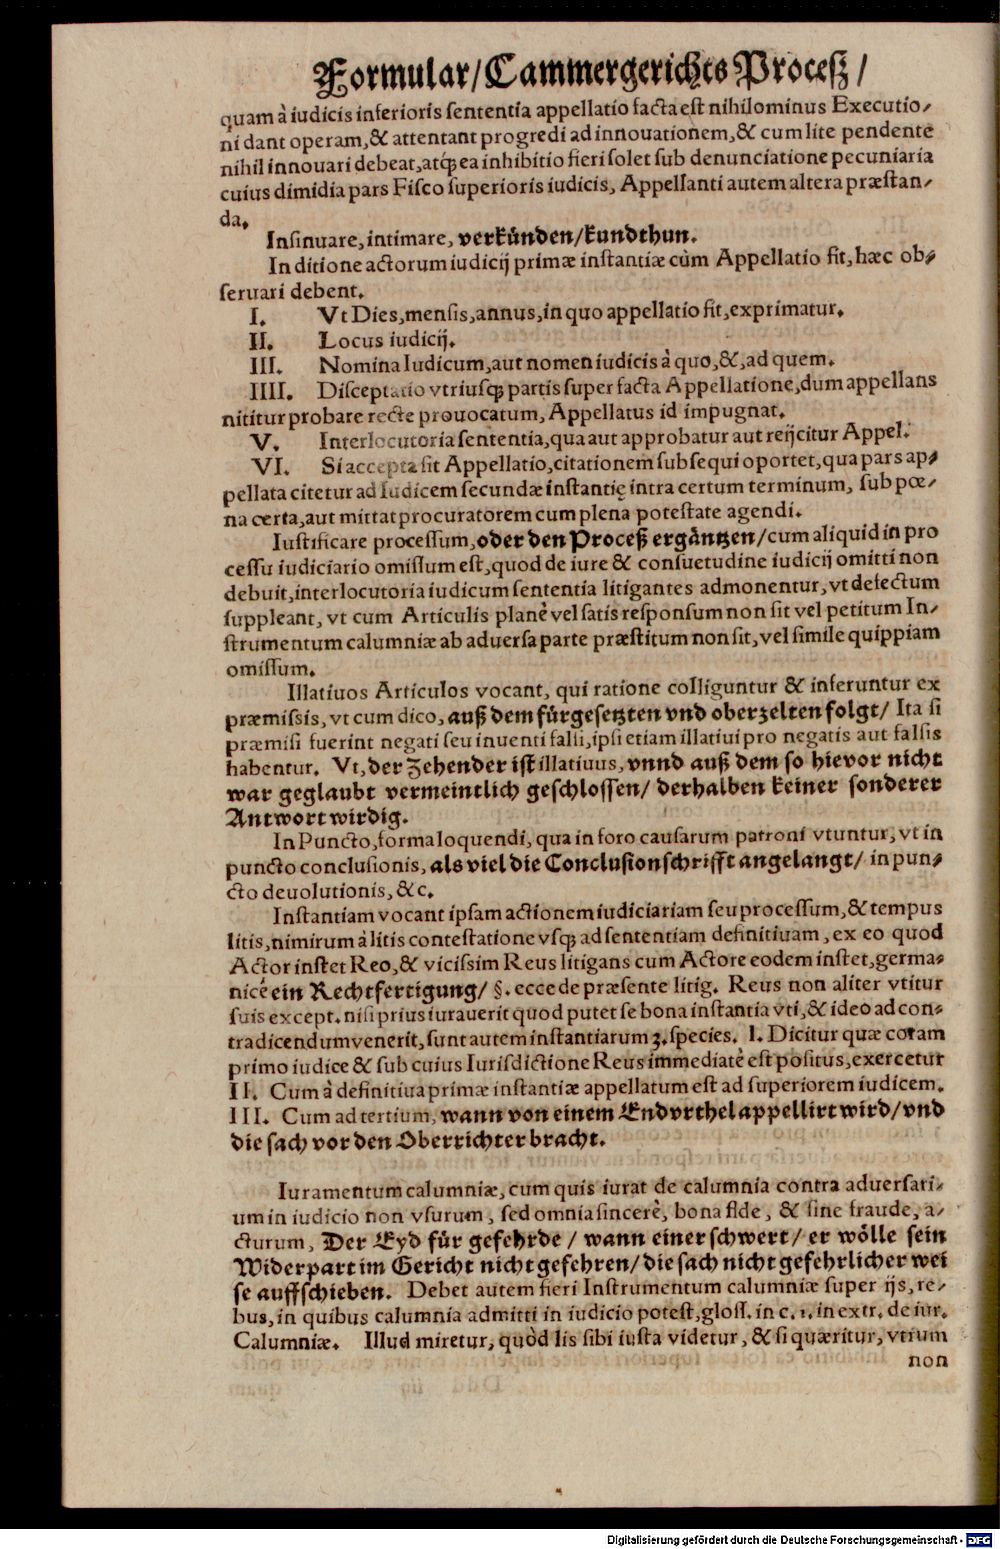 Formular/Cammergerichts Proceß/
quam à iudicis inferioris sententia appellatio facta est nihilominus Executio-
ni dant operam, & attentant progredi ad innouationem, & cum lite pendente
nihil innouari debeat, atq́; ea inhibitio fieri solet sub denunciatione pecuniaria
cuius dimidia pars Fisco superioris iudicis, Appellanti autem altera præstan-
da.
Insinuare, intimare, verkünden/kundthun.
In ditione actorum iudicij primæ instantiæ cùm Appellatio fit, hæc ob-
seruari debent.
I. Vt Dies, mensis, annus, in quo appellatio fit, exprimatur.
II. Locus iudicij.
III. Nomina Iudicum, aut nomen iudicis à quo, &, ad quem.
IIII. Disceptatio vtriusq́; partis super facta Appellatione, dum appellans
nititur probare recte prouocatum, Appellatus id impugnat.
V. Interlocutoria sententia, qua aut approbatur aut reijcitur Appel.
VI. Si accepta sit Appellatio, citationem subsequi oportet, qua pars ap-
pellata citetur ad Iudicem secundæ instantię intra certum terminum, sub pœ-
na certa, aut mittat procuratorem cum plena potestate agendi.
Iustificare processum, oder den Proceß ergäntzen/ cum aliquid in pro
cessu iudiciario omissum est, quod de iure & consuetudine iudicij omitti non
debuit, interlocutoria iudicum sententia litigantes admonentur, vt defectum
suppleant, vt cum Articulis planè vel satis responsum non sit vel petitum In-
strumentum calumniæ ab aduersa parte præstitum non sit, vel simile quippiam
omissum.
Illatiuos Articulos vocant, qui ratione colliguntur & inferuntur ex
præmissis, vt cum dico, auß dem fürgesetzten vnd oberzelten folgt/ Ita si
præmisi fuerint negati seu inuenti falsi, ipsi etiam illatiui pro negatis aut falsis
habentur. Vt, der Zehender ist illatiuus, vnnd auß dem so hievor nicht
war geglaubt vermeintlich geschlossen/ derhalben keiner sonderer
Antwort wirdig.
In Puncto, forma loquendi, qua in foro causarum patroni vtuntur, vt in
puncto conclusionis, als viel die Conclusionschrifft angelangt/ in pun-
cto deuolutionis, &c.
Instantiam vocant ipsam actionem iudiciariam seu processum, & tempus
litis, nimirum à litis contestatione vsq́; ad sententiam definitiuam, ex eo quod
Actor instet Reo, & vicissim Reus litigans cum Actore eodem instet, germa-
nicè ein Rechtfertigung/ §. ecce de præsente litig. Reus non aliter vtitur
suis except. nisi prius iurauerit quod putet se bona instantia vti, & ideo ad con-
tradicendum venerit, sunt autem instantiarum 3. species. I. Dicitur quæ coram
primo iudice & sub cuius Iurisdictione Reus immediatè est positus, exercetur
II. Cum à definitiua primæ instantiæ appellatum est ad superiorem iudicem.
III. Cum ad tertium, wann von einem Endvrthel appellirt wird/ vnd
die sach vor den Oberrichter bracht.
Iuramentum calumniæ, cum quis iurat de calumnia contra aduersari-
um in iudicio non vsurum, sed omnia sincerè, bona fide, & sine fraude, a-
cturum, Der Eyd für gefehrde / wann einer schwert/ er wölle sein
Widerpart im Gericht nicht gefehren/ die sach nicht gefehrlicher wei
se auffschieben. Debet autem fieri Instrumentum calumniæ super ijs, re-
bus, in quibus calumnia admitti in iudicio potest, gloss. in c. 1. in extr. de iur.
Calumniæ. Illud miretur, quòd lis sibi iusta videtur, & si quæritur, vtrum
non
Digitalisierung gefördert durch die Deutsche Forschungsgemeinschaft - DFG